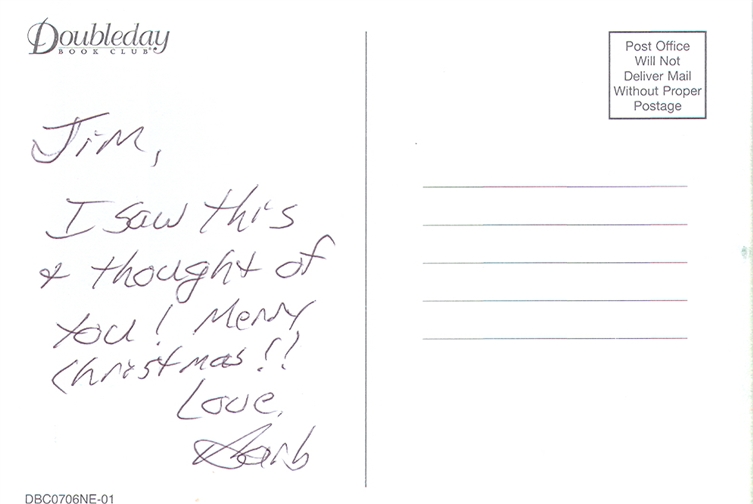 Doubleday
BOOK CLUB®
Jim,
I saw this
& thought of
you! Merry
Christmas!!
Love,
Barb
DBC0706NE-01
Post Office
Will Not
Deliver Mail
Without Proper
Postage